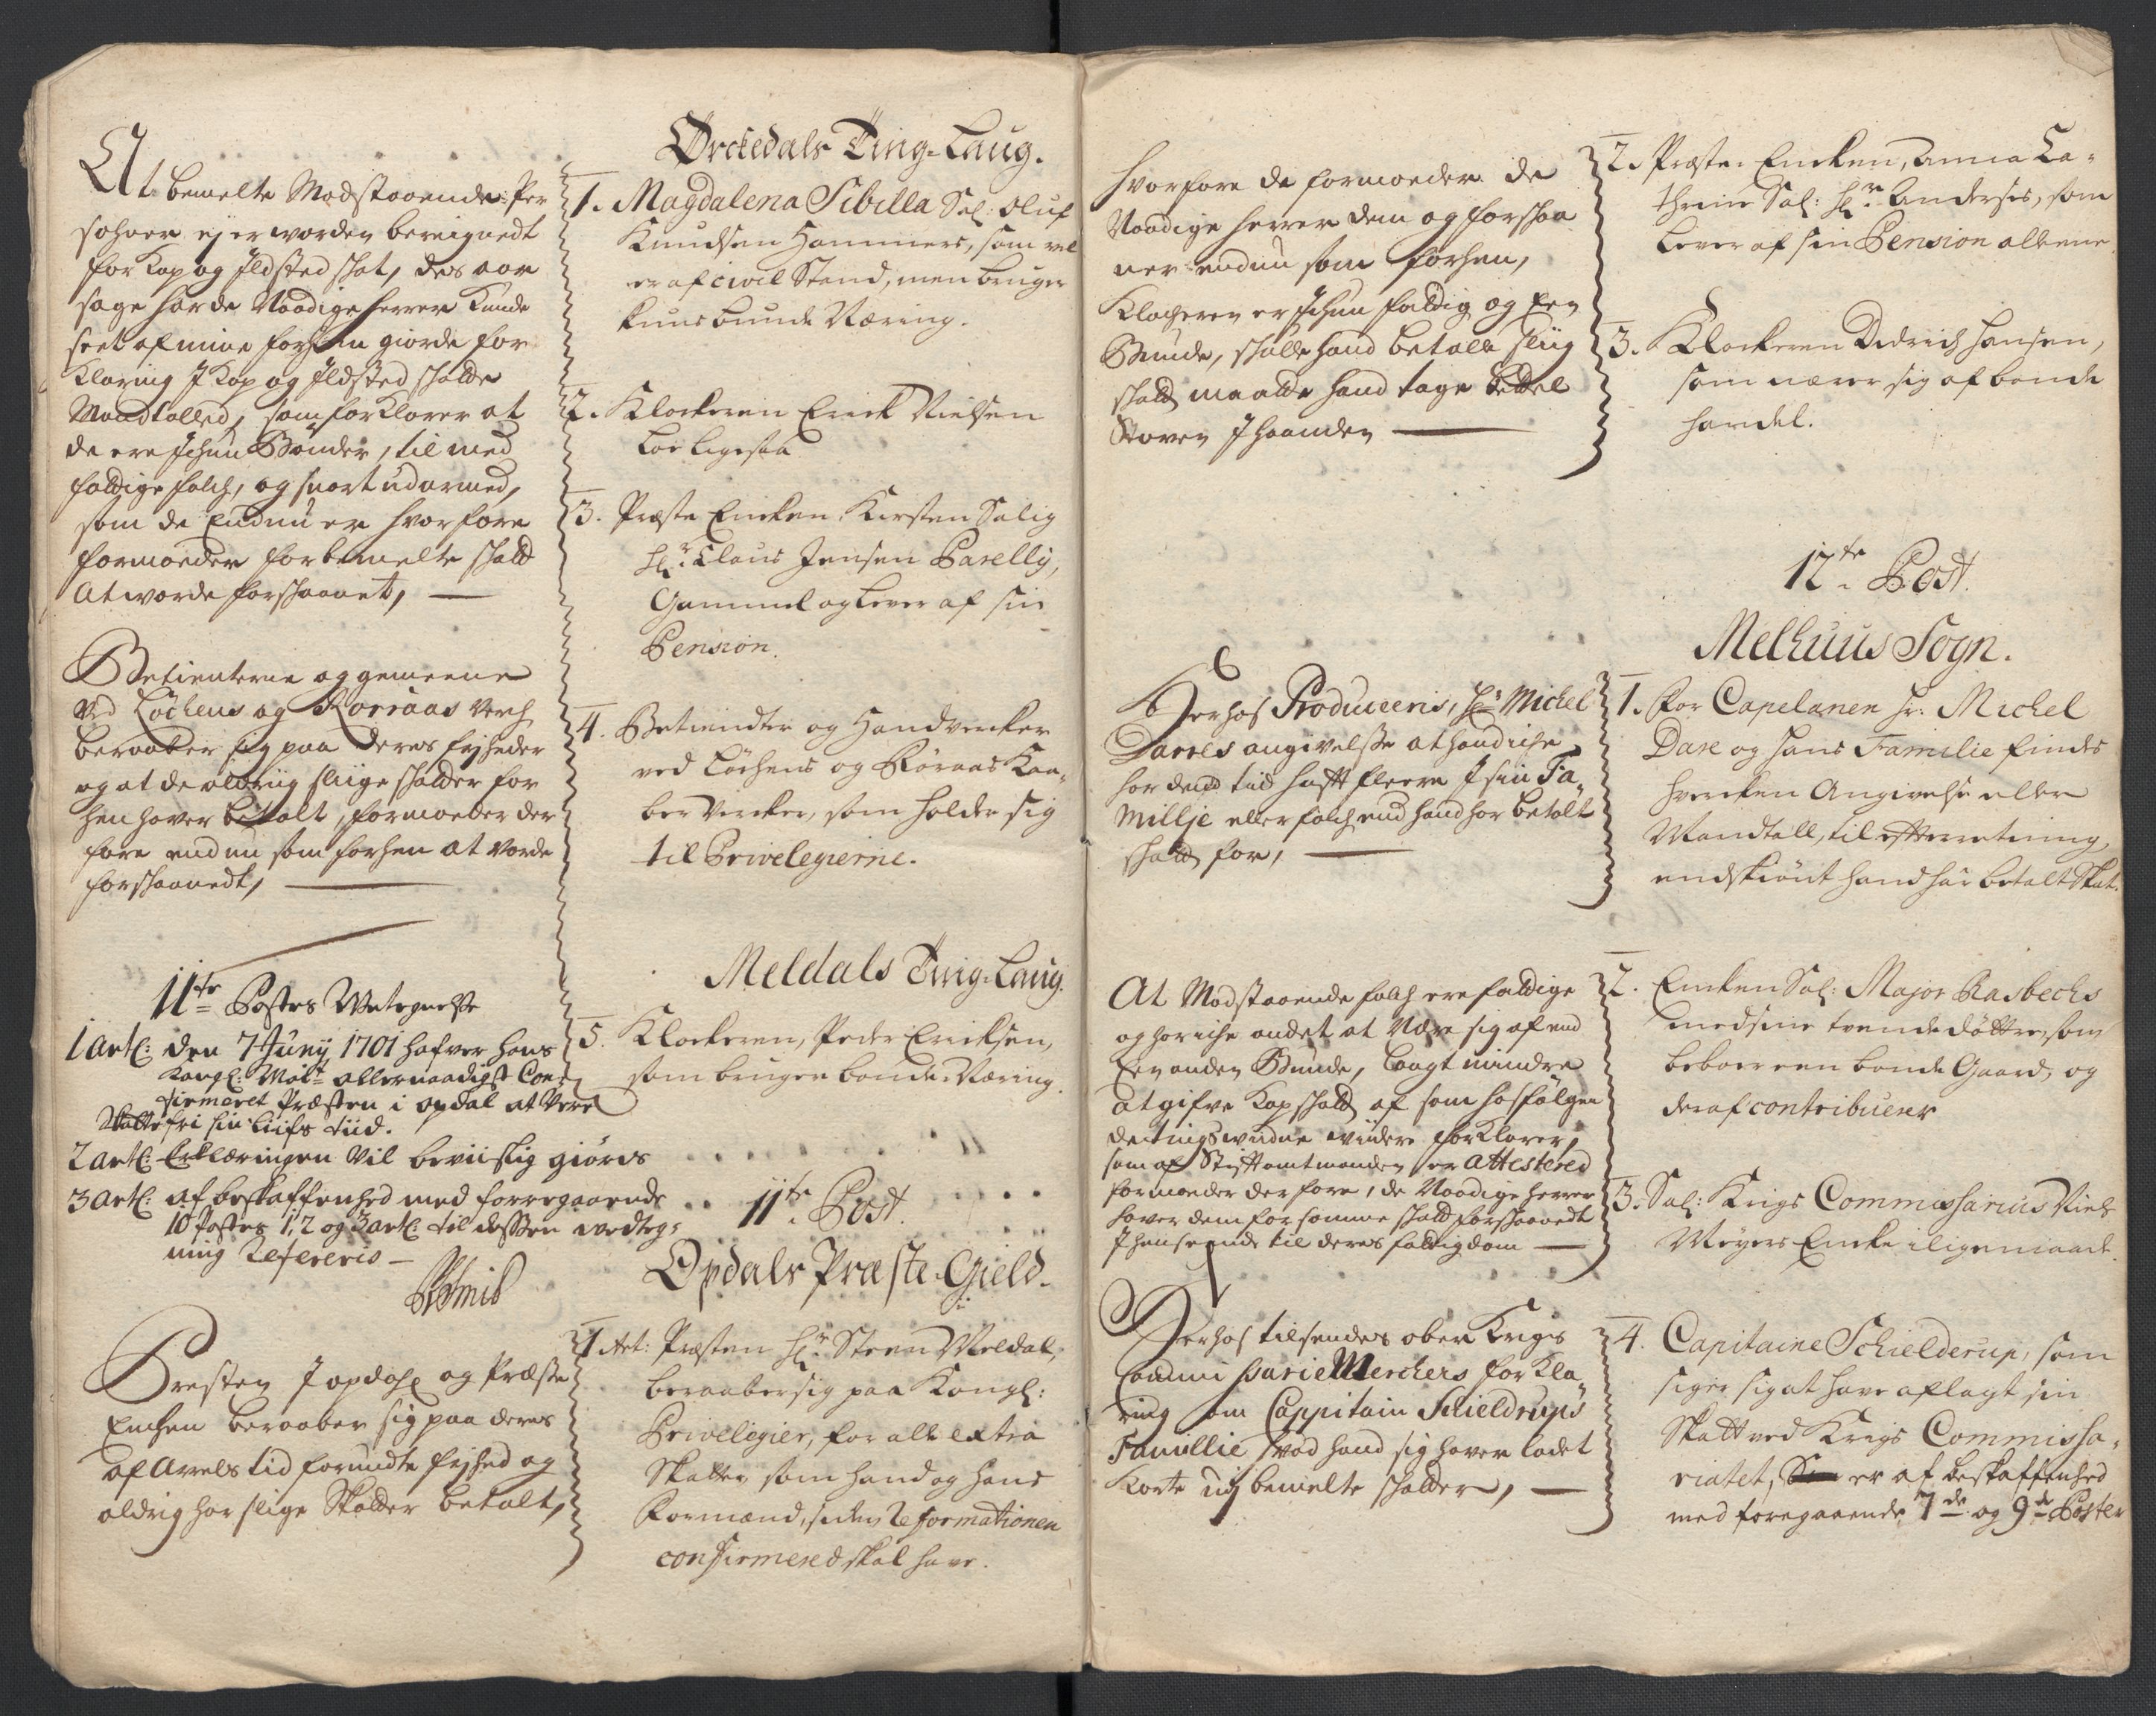 At bemelte Modstaaende Per
sohner ej er worden bereignedt
for Kop og Ildsted skat, des aar
sage har de Naadige herrer Kunde
seet af mine forhen giorde for
Klaring J Kop og Ildsted skatte
Mandtalled, som forklarer at
de ere ichun Bønder, til med
fattige folch, og suart udarmed,
som de Endnu er hvorfore
formoeder forbemelte skatt
At worde forskaanet,
Betienterne og gemeene
Ved Løchens og Rørraas Verch
beraaber sig paa deres frjheder
og at de aldriig sliige skatter for
hen haver betalt, formoeder der
fore endnu som forhen at vorde
forskaanedt,
11te Postes Antegnelse
1 Artl: den 7 Junij 1701 hafver hans
Kongl: Mait allernaadigst Con
firmeret Præsten i opdal at Være
Skatte fri sin Liifs tiid.
2 Artl: Erklæringen Vil beviislig giøres
3 Artl: af beskaffenhed med forregaaende
10 Postes 1, 2 og 3 artl: til dessen andteg-
ning Refereris
Presten J opdahl og Præste
Enchen beraaber sig paa deres
af Arrels tid forundte frjhed og
aldrig har slige Skatter betalt,
Ørckedals Ting-Laug.
1. Magdalena Sibilla Sal: Oluf
Knudsen Hammers, som vel
er af civil Stand, men bruger
kuns bunde Næring.
2. Klockeren Erick Nielsen
Loe ligesaa
3. Præste Encken Kirsten Salig
Hr: Claus Jensen Parelly,
Gammel og lever af sin
Pension.
4. Betiendter og Handvercker
ved Løchens og Røraas Kaa-
ber Vercker, som holder sig
til Privelegierne.
Meldals Ting-Laug.
5. Klockeren, Peder Ericksen,
som bruger bonde Næring.
11te Post.
Opdals Præste-Gield.
1 Art: Præsten Hr: Steen Meldal,
beraaber sig paa Kongl:
Privelegier, for alle extra
Skatter som hand og hans
Formænd, siden Reformationen
confirmered skal have.
hvorfore de formoeder de
Naadige herrer dem og forskaa
ner endnu som forhen,
Klocheren er ichun fattig og Een
Bunde, skulle hand betale sliig
skatt maatte hand tage bettel
Staven J haanden
Herhos Produceris, Hr: Michel
Darres angivelse at hand iche
har dend tid haft fleere J sin Fa-
millje eller folch end hand har betalt
skatt for,
At Modstaaende folch ere fattige
og har iche andet at Nære sig af end
Een anden Bunde, langt mindre
at gifve Kopskatt af som hosfølgen
de tingsvidne vidre forklarer,
som af Stiftamtmanden er Attestered
formoeder derfore, de Naadige herrer
haver dem for samme skatt forskaanedt
J henseende til deres fattigdom
Herhos tilsendes ober Krigs
Commissarie Merckers forkla-
ring om Cappitain Schieldrups
Famillie, hvad hand sig haver ladet
Korte udj bemelte skatter,
2. Præste Encken, Anna Ca-
thrine Sal: Hr: Anderses, som
lever af sin Pension allene
3. Klockeren Didrich Hansen,
som nærer sig af bonde
handel.
12te Post.
Melhuus Sogn.
1. For Capelanen Hr: Michel
Dare og hans Familie findes
hvercken Angivelse eller
Mandtall, til efterretning,
endskiønt hand har betalt Skat.
2. Encken Sal: Major Rasbechs
med sine tvende døttre, som
beboer een bonde Gaard, og
deraf contribuerer
3. Sal: Krigs Commissarius Niels
Meyers Encke iligemaade.
4. Capitaine Schielderup, som
siger sig at have aflagt sin
Skatt ved Krigs Commissa-
riatet, er af beskaffenhed
med foregaaende 7de og 9de Poster